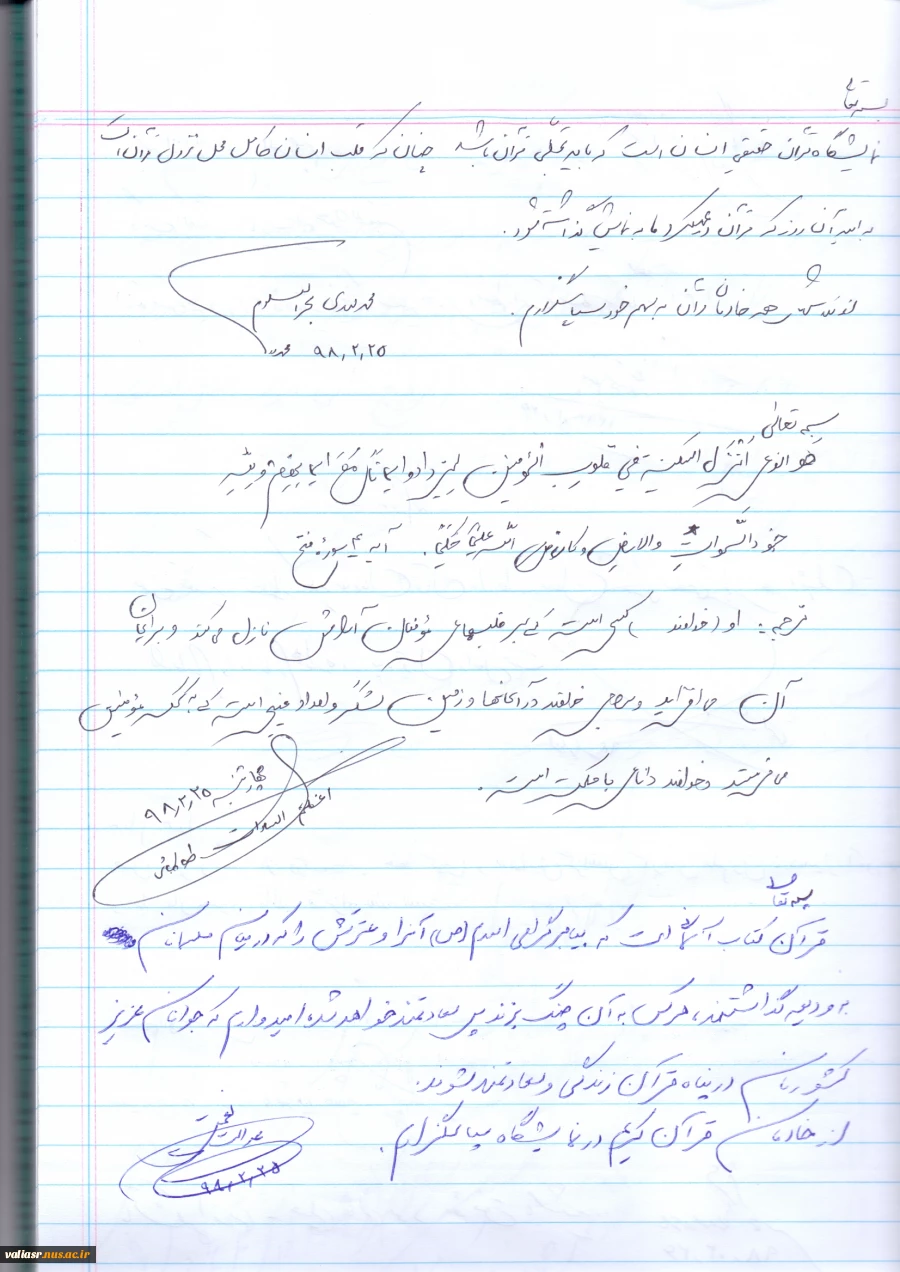 بسمه تعالی
نمایشگاه قرآن حقیقی انسان است که باید تجلی قرآن باشد چنان که قلب انسان کامل محل نزول قرآن است
به امید آن روز که قرآن در عملکرد ما به نمایش گذاشته شود.
از تلاش همه خادمان قرآن به سهم خود سپاسگزارم.
محمد مهدی بحرالعلوم
۹۸٫۲٫۲۵
بسمه تعالی
هُوَ الذی أَنْزَلَ السکینة فی قلوب المؤمنین لیزدادوا ایماناً مَعَ ایمانِهِم و لله
جنود السَّمواتِ والارض و کان الله علیماً حکیماً. آیه ۴ سوره فتح
ترجمه: او (خداوند) کسی است که بر قلبهای مؤمنان آرامش نازل می‌کند و بر ایمان
آن می‌افزاید و برای خداوند در آسمانها و زمین لشگر و امداد غیبی است که به کمک مؤمنین
می‌فرستد و خداوند دانای با حکمت است.
چهارشنبه ۹۸٫۲٫۲۵
اعظم السادات
بسمه تعالی
قرآن کتاب آسمانی است که پیامبر گرامی اسلام (ص) آنرا و عترتش را که در میان مسلمانان
به ودیعه گذاشتند، هرکس به آن چنگ بزند پس سعادتمند خواهد شد، امیدوارم که جوانان عزیز
کشورمان در پناه قرآن زندگی و سعادتمند شوند.
از خادمان قرآن کریم در نمایشگاه سپاسگزارم.
عدالت
۹۸٫۲٫۲۵
valiasr.nus.ac.ir